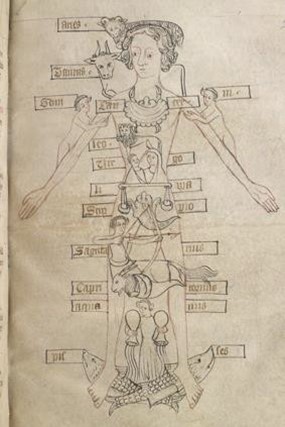 aries
Taurus
Gemi ni
Can cer
leo
Vir go
li bra
Scor pio
Sagita rius
Capri cornus
aqua rius
pis ces